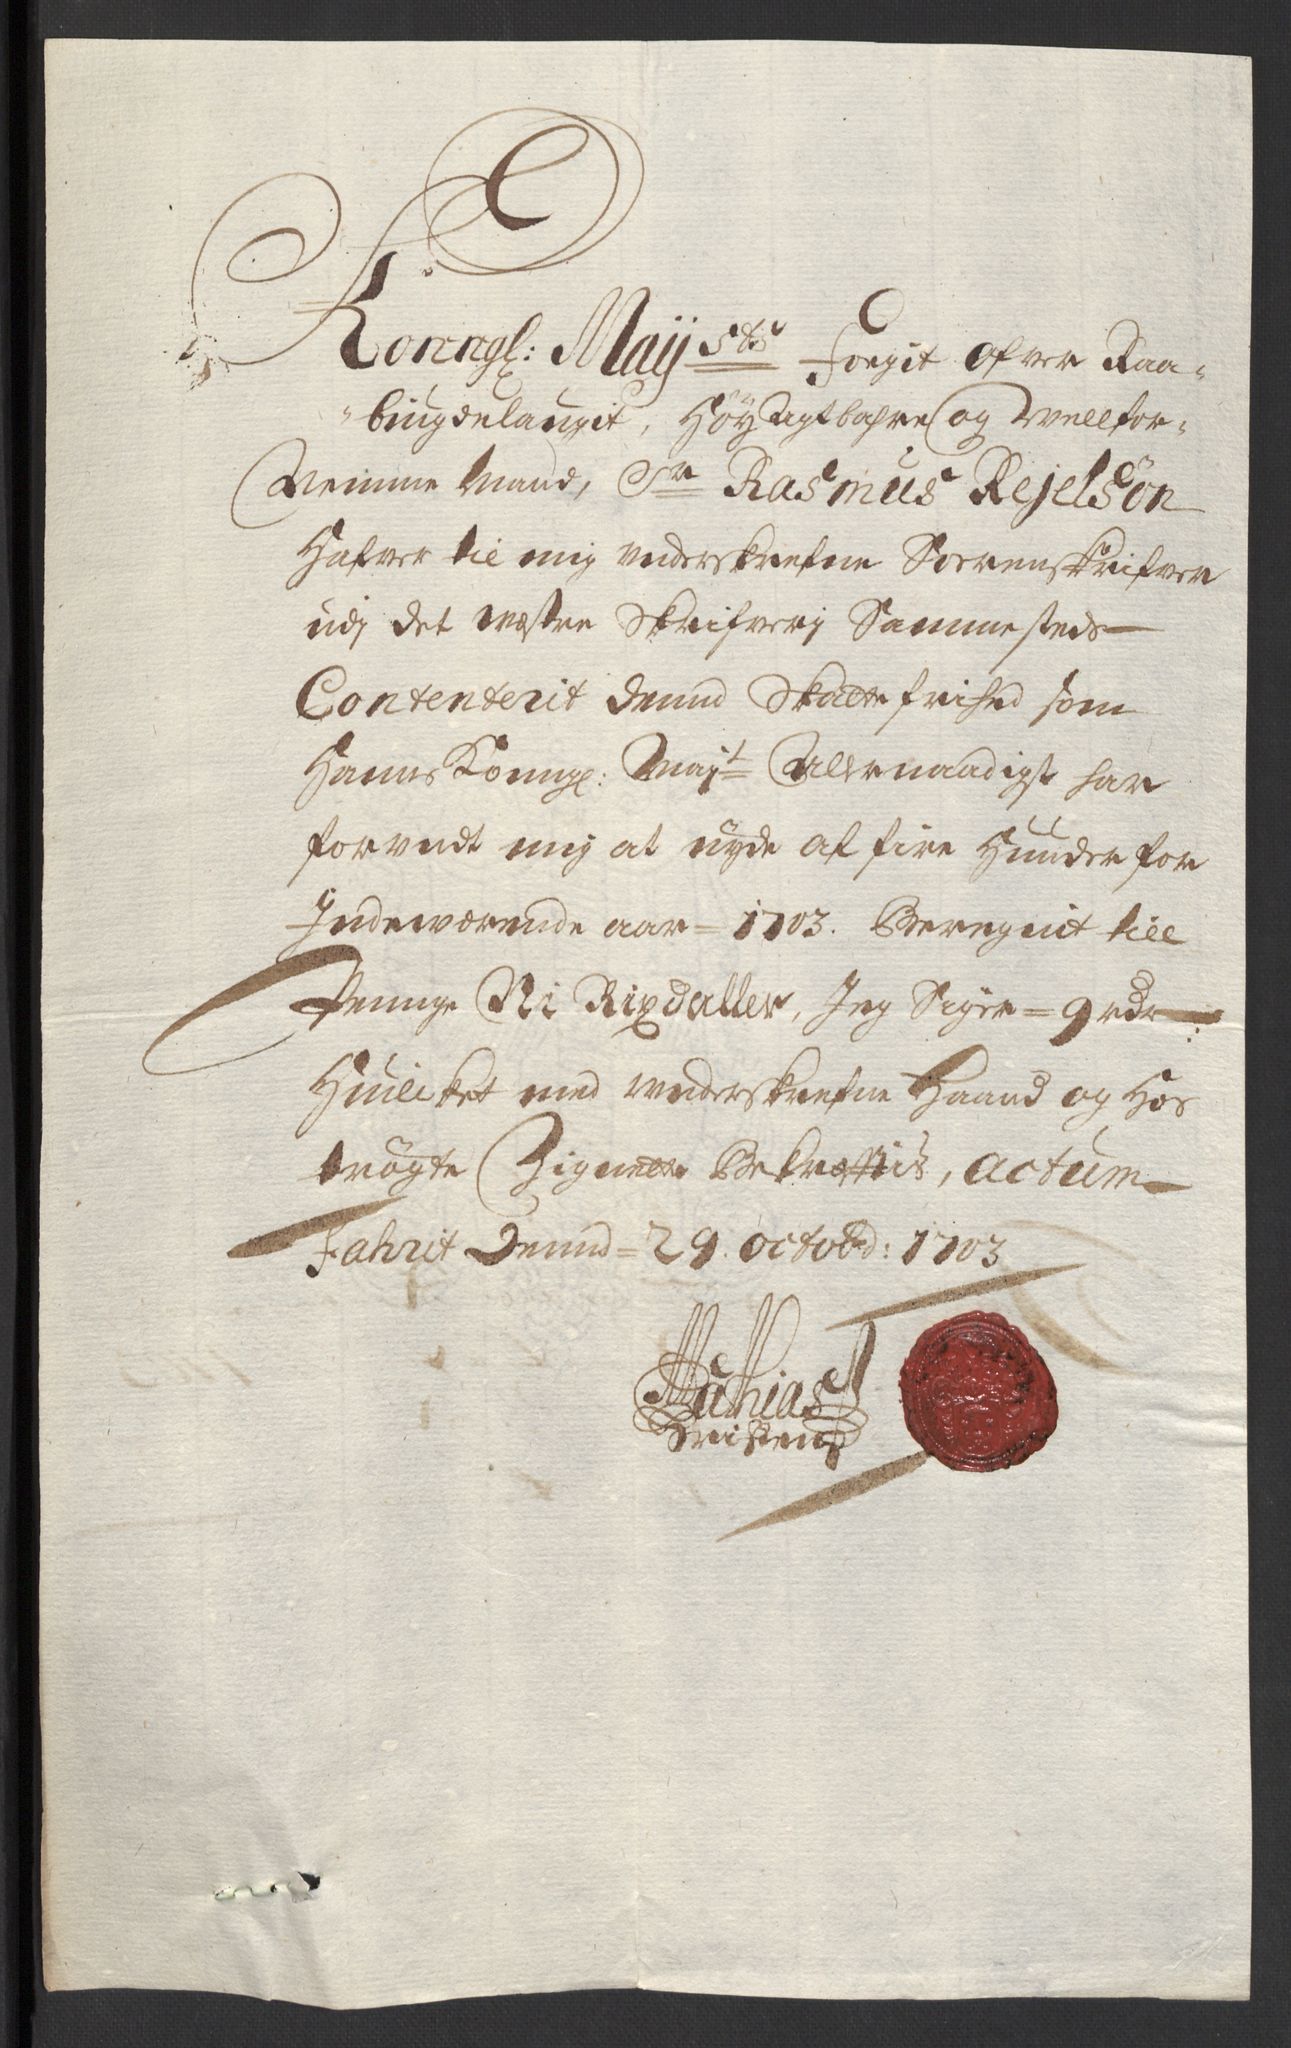 Konngl: Maij sts Foegit ofver Raa-
bÿugdelaugit, HöyAgtbahre og Vellfor-
Nemme Mand, Sr Rasmus Rejelsön
Hafver til mig underskrefne Sorenskrifver
udj det westre Skrifverj Sammesteds
Contenterit dennd Skatte frihed som
Hanns Konngl: Mayt Allernaadigst har
forundt mig at nyde af fire Hunder for
Indeværende aar = 1703. Beregnit till
Pennge Ni Rixdaller, Jeg Siger = 9 rdr
Huilcket med underskrefne Haand og Hos
trögte Zignette Bekræfftis, actum
Fahrit Dennd = 29. octobd: 1703
Mathias